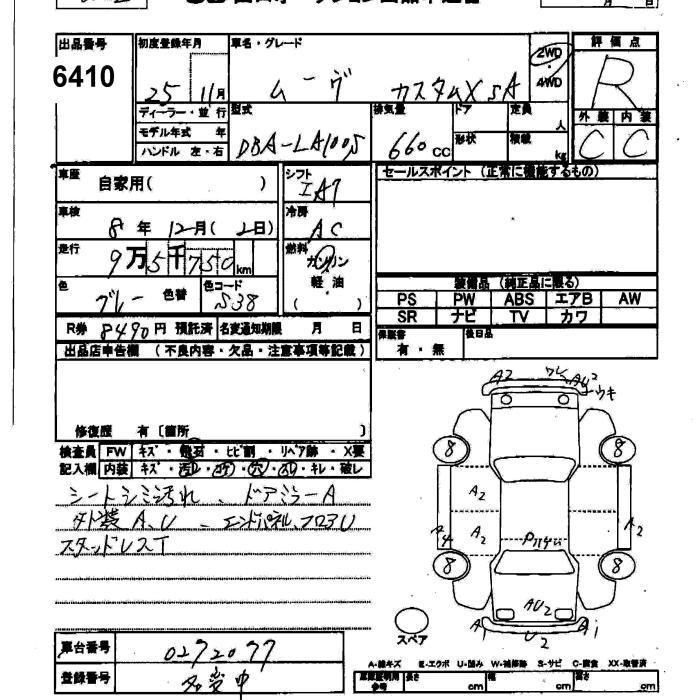 月 日
出品番号
6410
初度登録年月
25年 11月
車名・グレード
ムーヴ カスタムX SA
2WD
・
4WD
評価点
R
外装 内装
C C
ディーラー・並行
モデル年式 年
ハンドル 左・右
型式
DBA-LA100S
排気量
660 CC
ドア
形状
定員
人
積載
kg
車歴
自家用( )
車検
8年 12月( 2日)
走行
9万5千750km
色
グレー
色替
色コード
S38
シフト
IAT
冷房
AC
燃料
ガソリン
軽油
( )
セールスポイント (正常に機能するもの)
装備品 (純正品に限る)
PS PW ABS エアB AW
SR ナビ TV カワ
保証書
有・無
後日品
R券 8490円 預託済 名変通知期限 月 日
出品店申告欄 (不良内容・欠品・注意事項等記載)
修復歴 有〔箇所 〕
検査員 FW キズ・飛石・ヒビ割・リペア跡・X要
記入欄 内装 キズ・汚レ・コゲ・穴・スレ・キレ・破レ
シートシミ汚れ、ドアミラーA
外装A、U エンドパネル、フロアU
スタッドレスT
A2 ワレ AU2
ウキ
8 8
A2
A4 A2 A2
8 8
AU2
A1 U2 A1
スペア
A-線キズ E-エクボ U-凹み W-補修跡 S-サビ C-腐食 XX-取替済
車台番号
0272077
登録番号
名変中
車庫証明用
参考
長さ cm
幅 cm
高さ cm